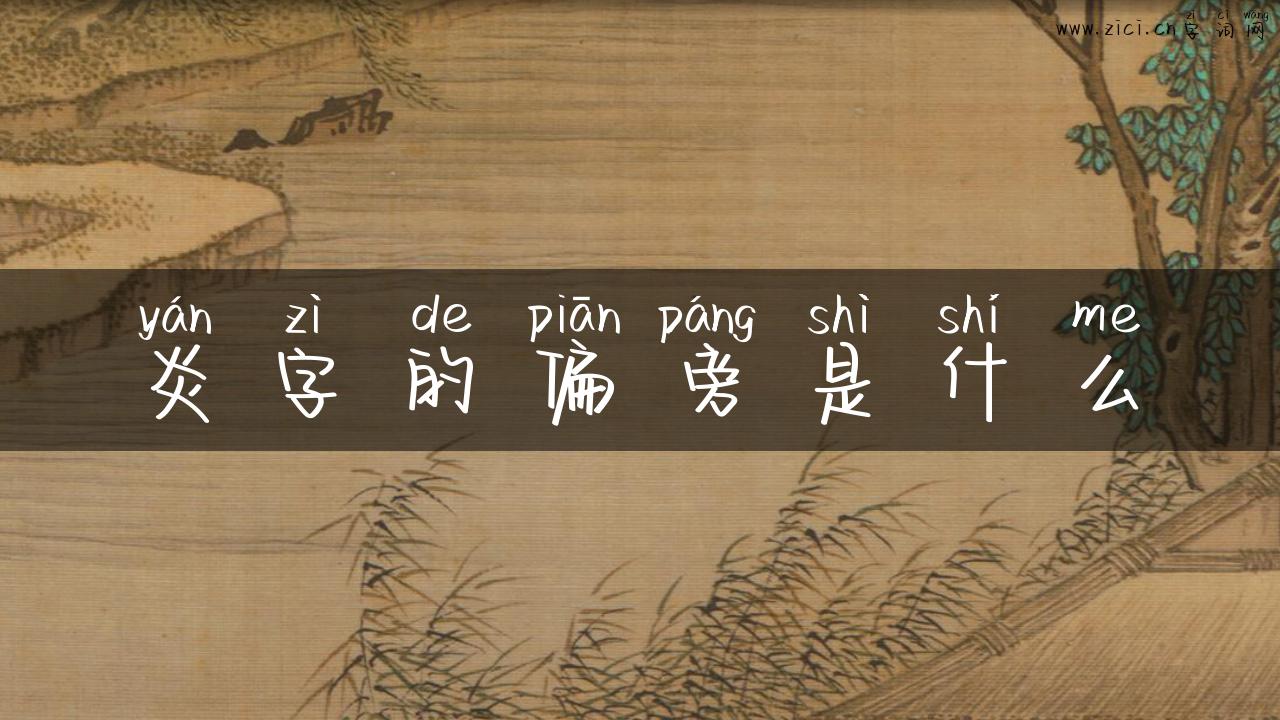 zì cí wǎng
www.zici.cn字词网
yán zì de piān páng shì shí me
炎字的偏旁是什么